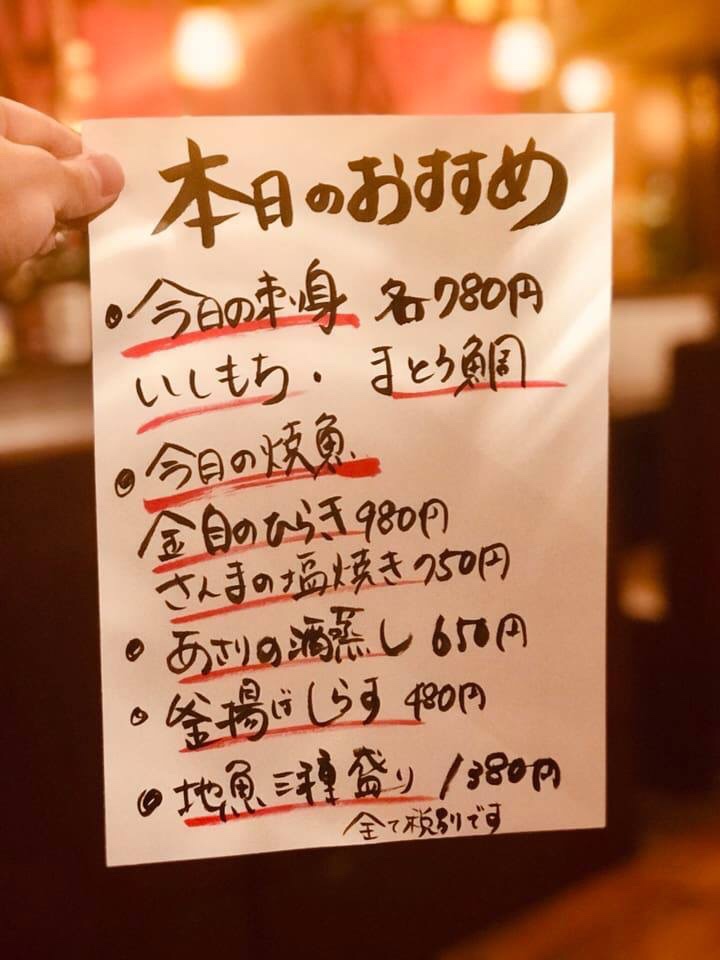 本日のおすすめ
●今日の刺身 各780円
いしもち・まとう鯛
●今日の焼魚
金目のひらき980円
さんまの塩焼き750円
●あさりの酒蒸し 650円
●釜揚げしらす 480円
●地魚三種盛り 1380円
全て税別です